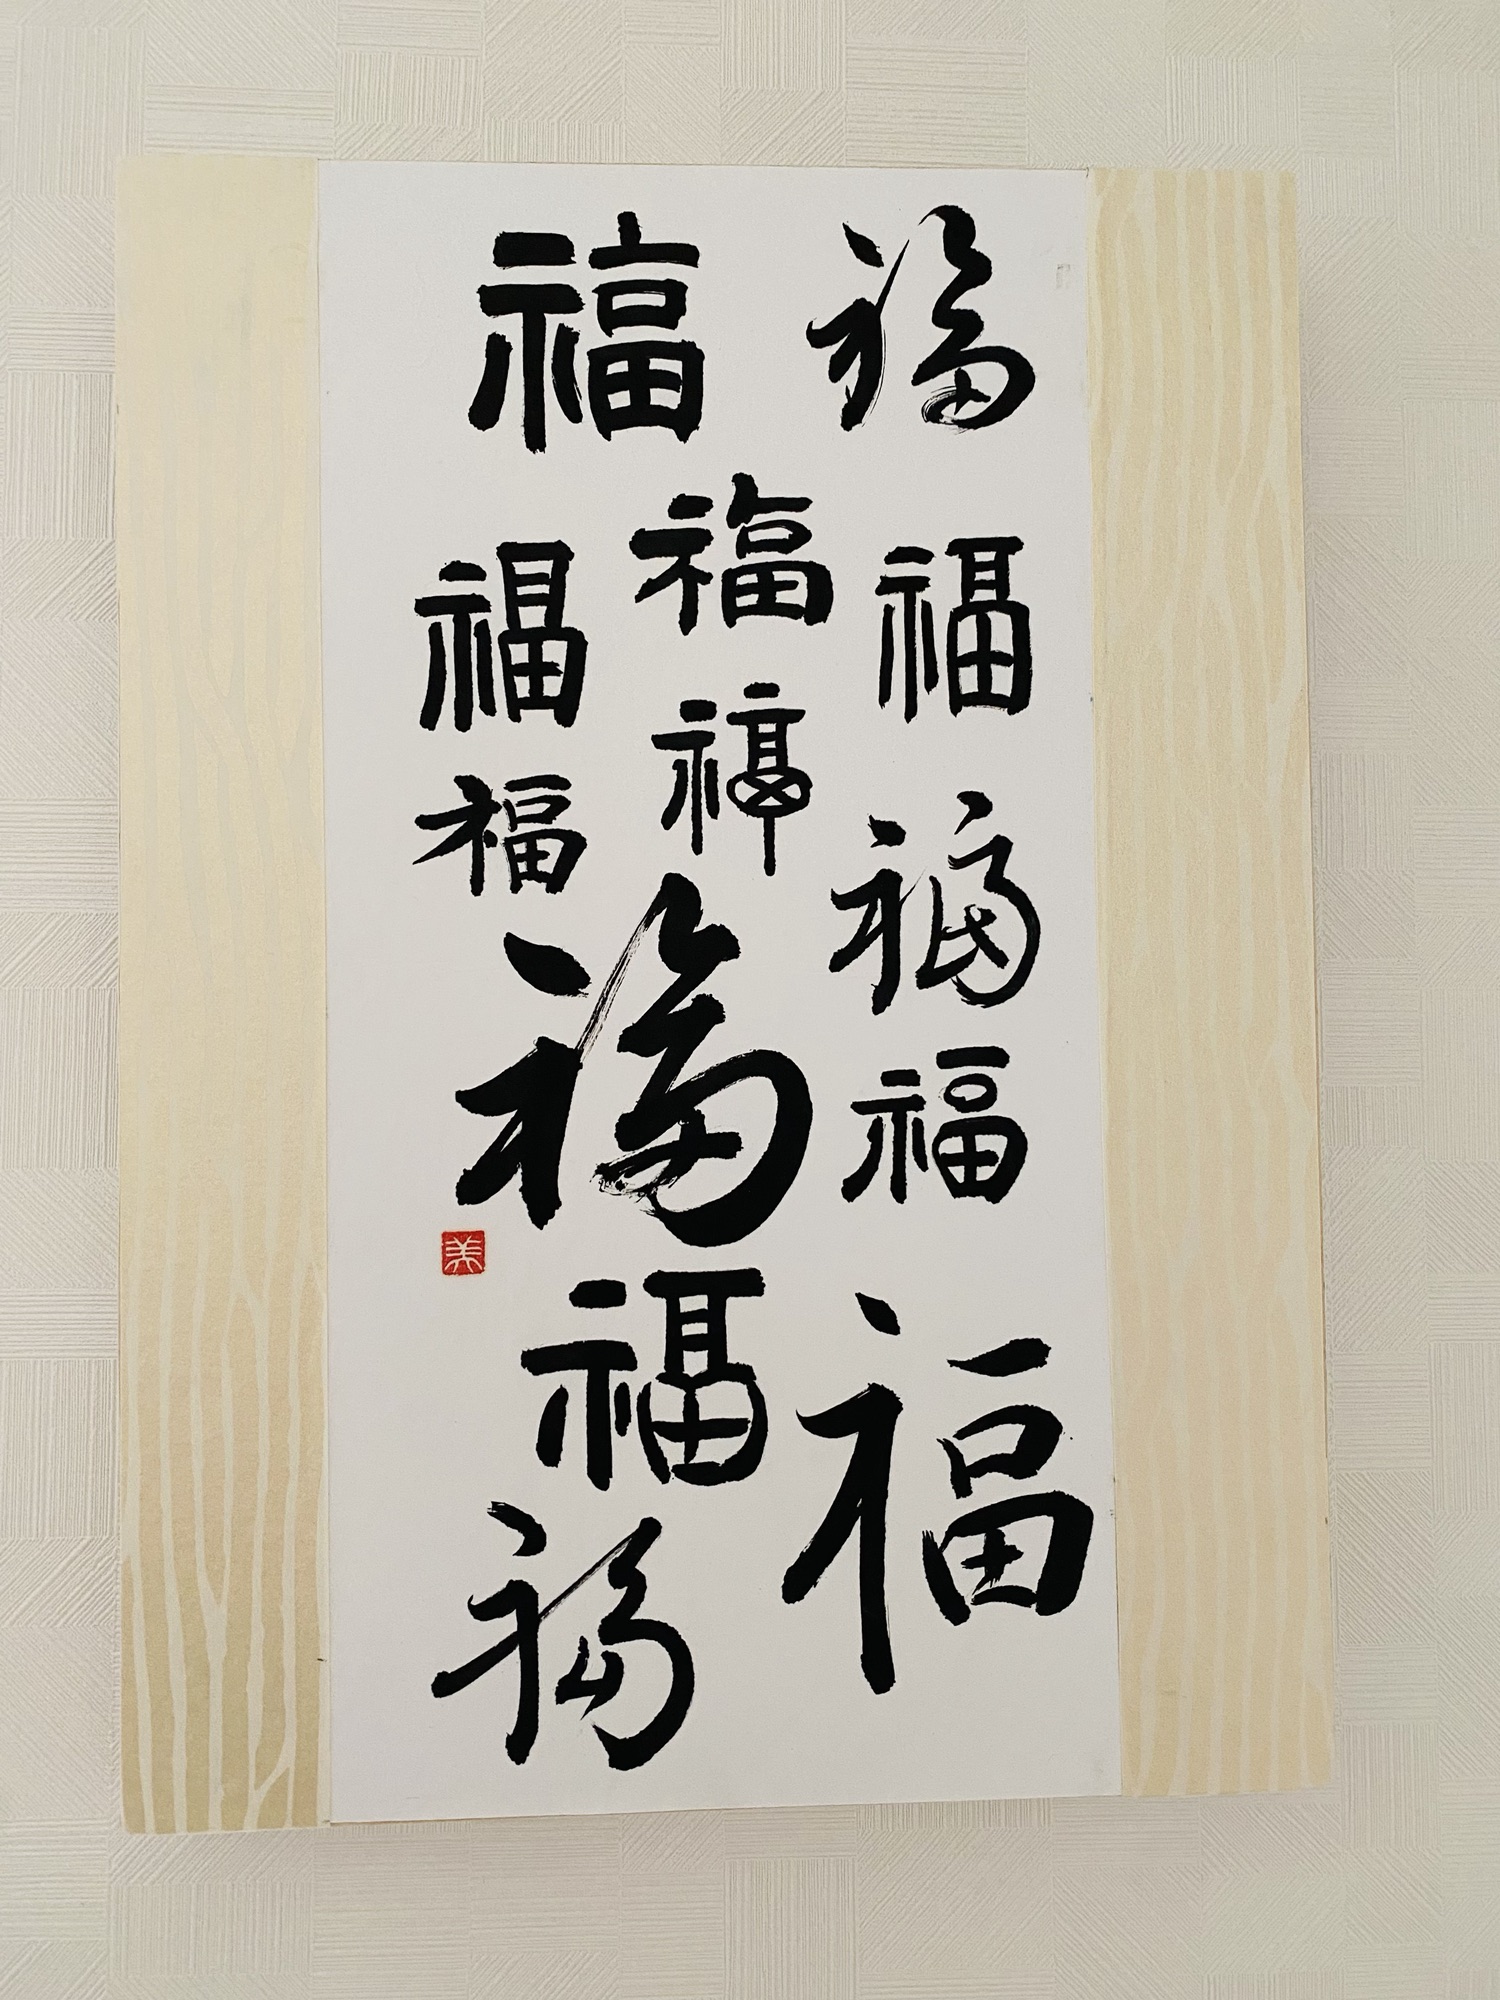 福
福
福
福
福
福
福
福
福
福
福
福
福
美